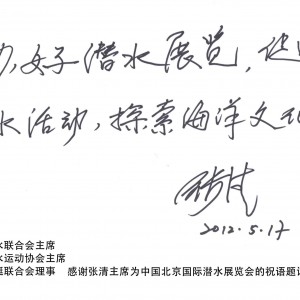 办好潜水展览，促进
水活动，探索海洋文化
张清
2012.5.17
水联合会主席
水运动协会主席
艇联合会理事 感谢张清主席为中国北京国际潜水展览会的祝语题词